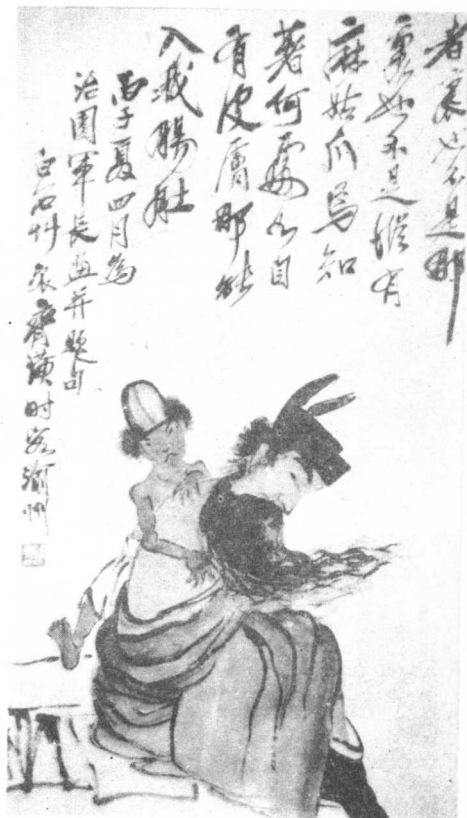 者裏也不是那
裏也不是縱有
麻姑爪焉知
著何處各自
有皮膚那能
入我腸肚
丙子夏四月為
治園軍長畫并題句
白石艸衣齊璜時客渝州